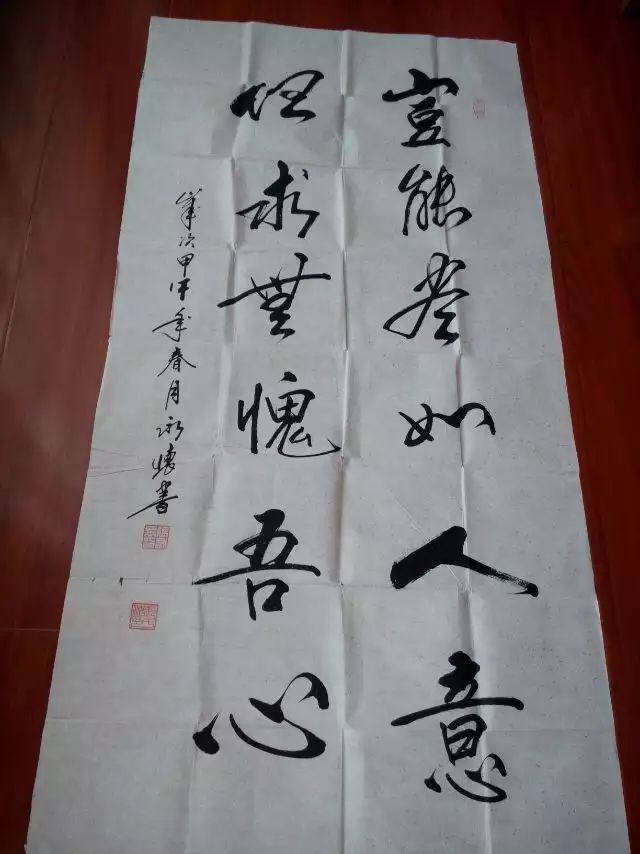 豈能盡如人意
但求無愧吾心
歲次甲申年春月永懷書